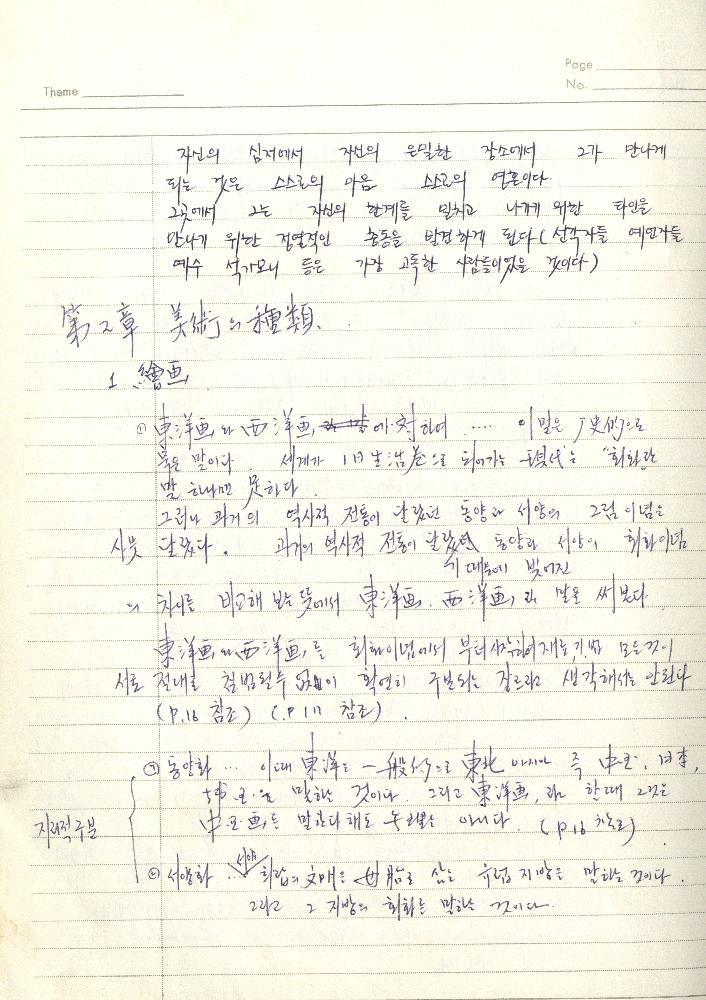 Theme
Page
No.
자신의 심저에서 자신의 은밀한 장소에서 그가 만나게
되는 것은 스스로의 마음 스스로의 영혼이다.
그곳에서 그는 자신의 한계를 밀치고 나가기 위한 타인을
만나기 위한 정열적인 충동을 발견하게 된다 (선각자들 예언자들
예수 석가모니 등은 가장 고독한 사람들이었을 것이다)
第2章 美術의 種類.
1 繪画
① 東洋画와 西洋画에 対하여 .... 이말은 史的으로
묵은 말이다. 세계가 1日生活巻으로 되어가는 現代는 "회화란
말 하나면 足하다
그러나 과거의 역사적 전통이 달랐던 동양과 서양의 그림이념은
사뭇 달랐다. 과거의 역사적 전통이 달랐 동양과 서양의 회화이념
기 때문에 빚어진
의 차이를 비교해 보는 뜻에서 東洋画, 西洋画라 말을 써보다.
東洋画와 西洋画를 회화이념에서 부터 시작하여 재료, 기법 모든것이
서로 절대로 침범될수 없이 확연히 구분되는 장르라고 생각해서는 안된다
(P.16 참조) (P 17 참조).
㉠ 동양화 ... 이때 東洋는 一般的으로 東北 아시아 즉 中국, 日本,
국을 말하는 것이다. 그리고 東洋画라 한때 그것은
中国画를 말한다해도 아니다. (P.16 참조)
지리적 구분
㉡ 서양화 ... 서양 희랍의 文明을 母胎로 삼는 유럽 지방을 말하는 것이다.
그리고 그 지방의 회화를 말하는 것이다.